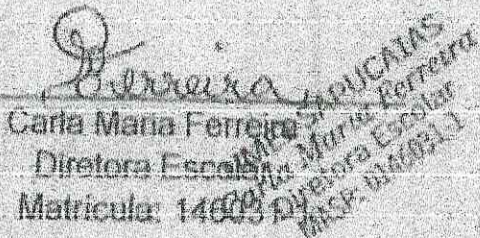 Ferreira
Carla Maria Ferreira
Diretora Escolar
Matrícula: 14603
SAPUCAIAS
Carla Maria Ferreira
Diretora Escolar
MASP: